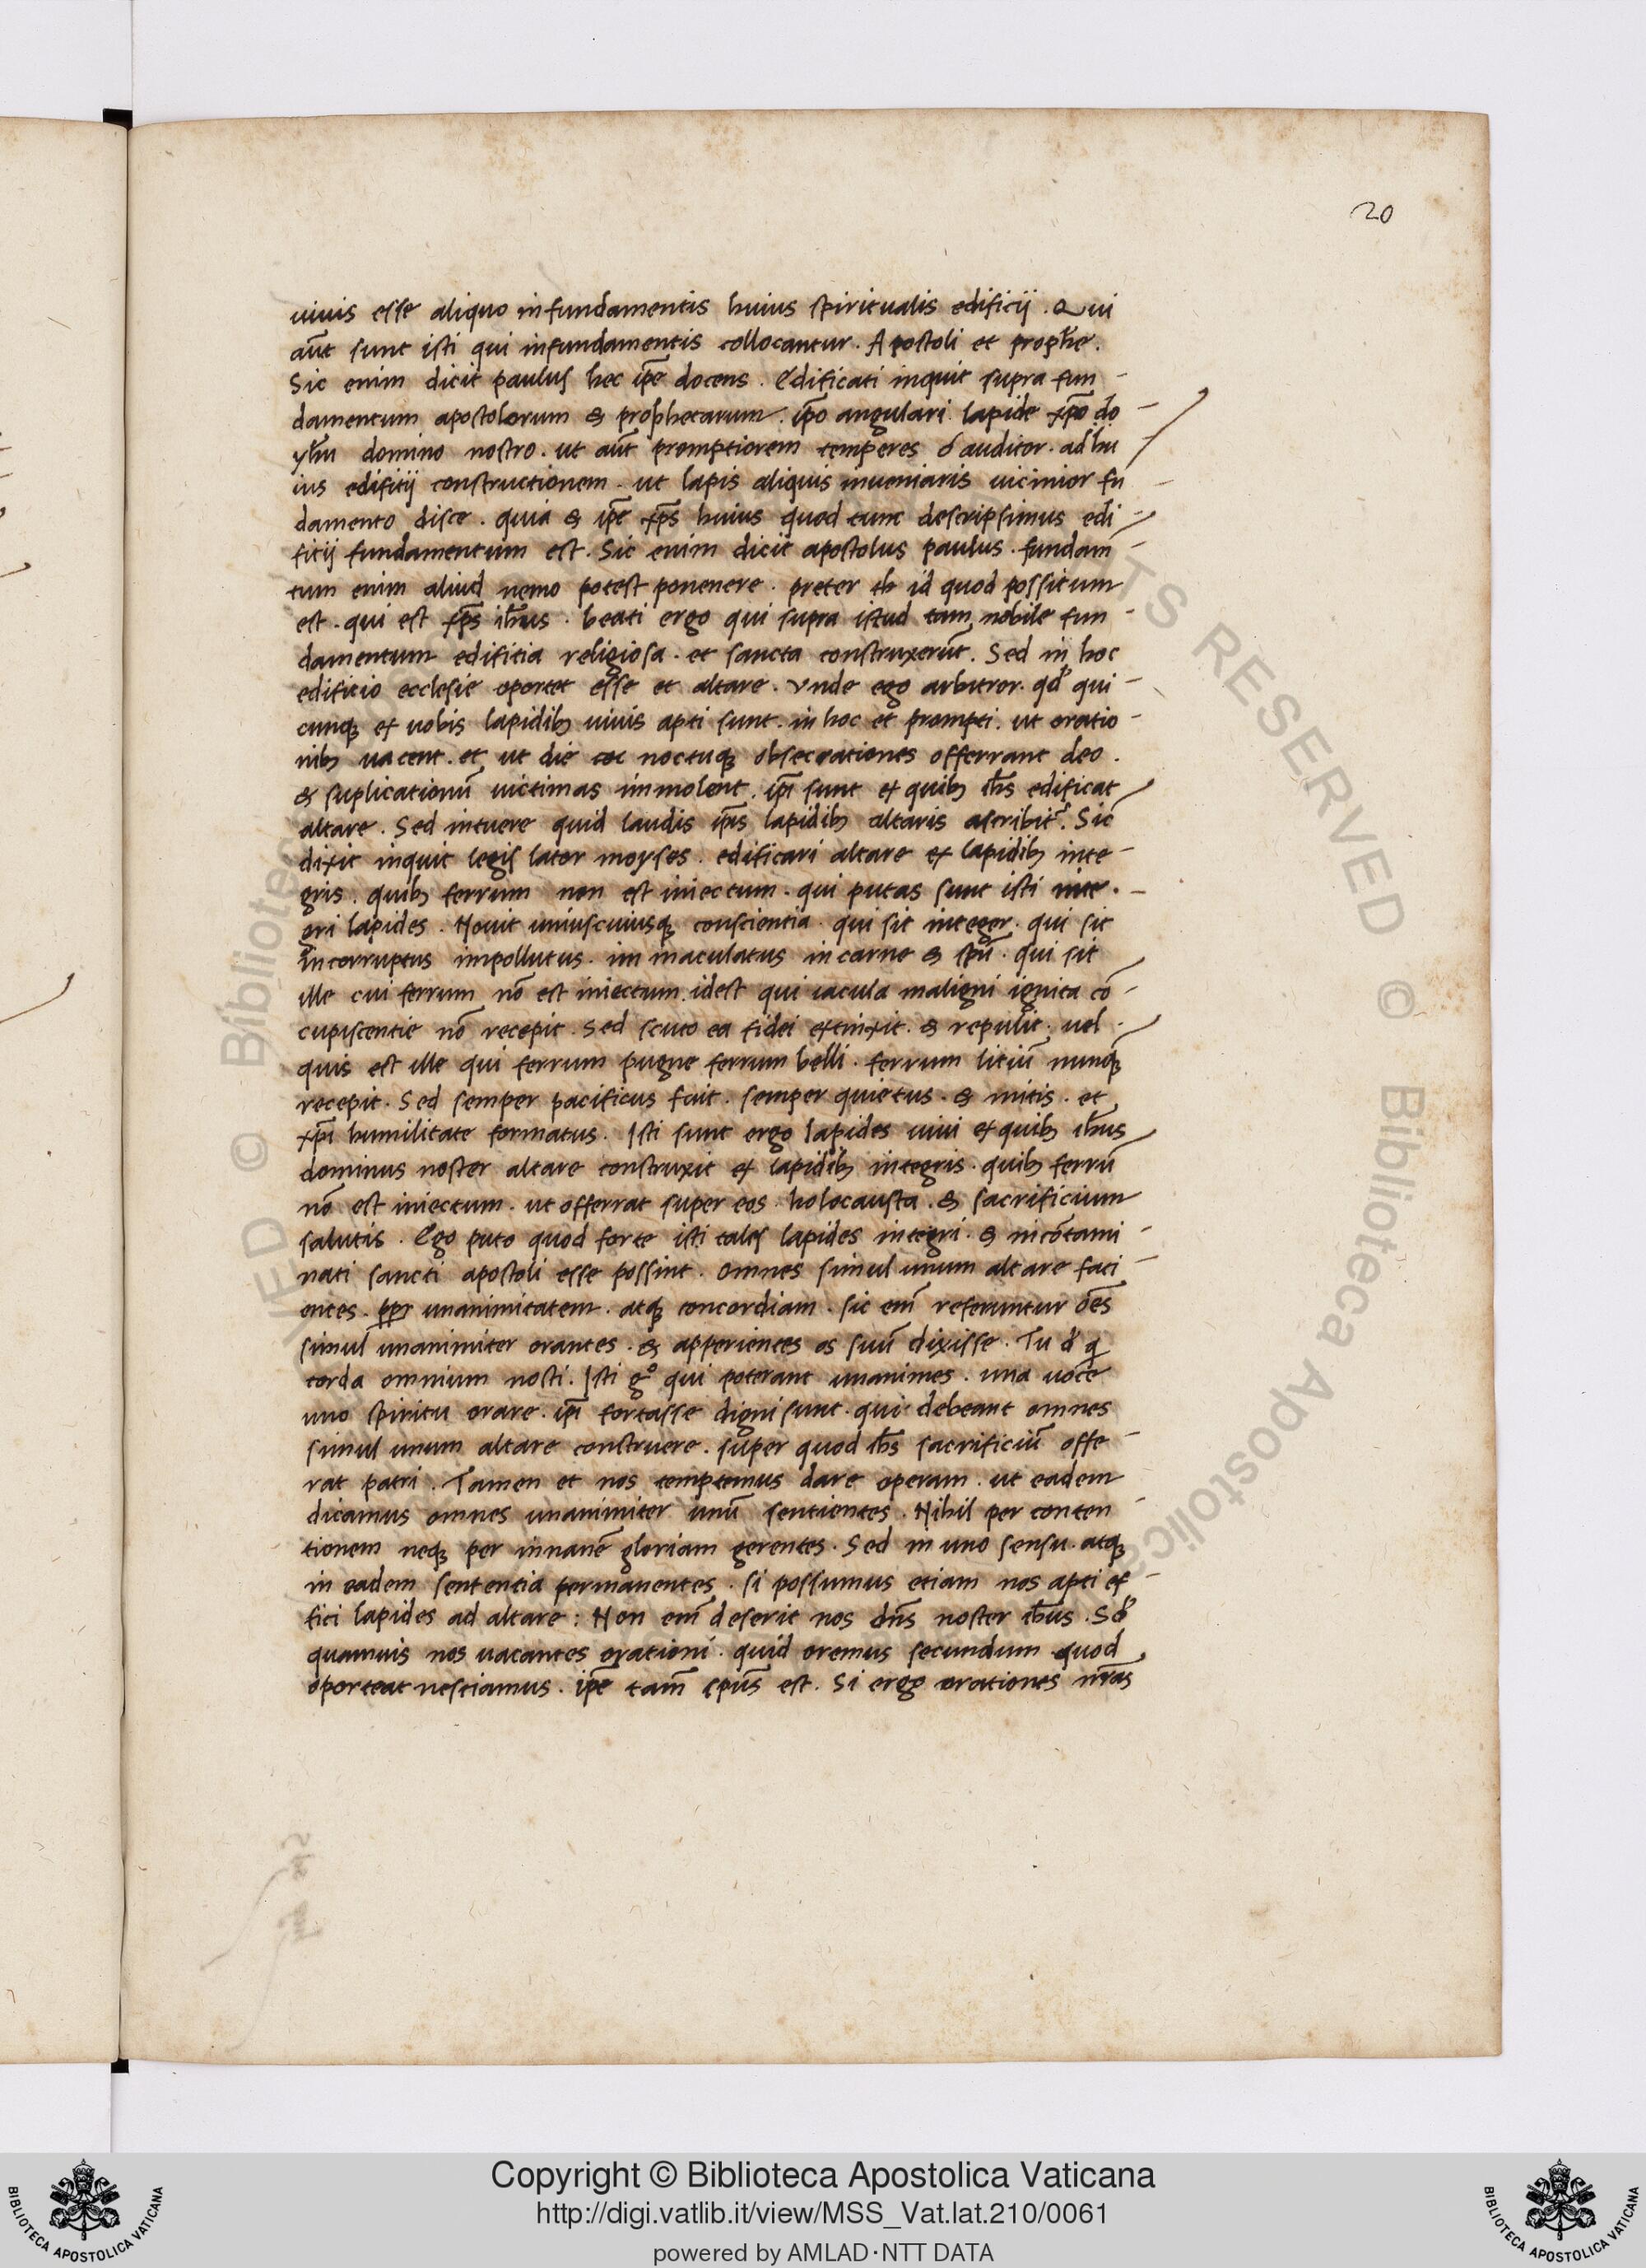 20
uiuis esse aliquo infundamentis huius spiritualis edificij . Qui
aūt sunt isti qui infundamentis collocantur . Apostoli et proph̄e .
Sic enim dicit paulus hec ip̄e docens . Edificati inquit supra fun-
damentum apostolorum & prophetarum . ip̄o angulari lapide xp̄o do-
yh̄u domino nostro . ut aūt promptiorem temperes o auditor . ad hu
ius edifitij constructionem . ut lapis aliquis inueniaris uicinior fū-
damento disce . quia & ip̄e xp̄s huius quod tunc descripsimus edi-
fitij fundamentum est . Sic enim dicit apostolus paulus . fundam̄-
tum enim aliud nemo potest ponenere . preter id quod possitum
est . qui est xp̄s ih̄us . beati ergo qui supra istud tam nobile fun-
damentum edifitia religiosa . et sancta construxerūt . Sed in hoc
edificio ecclesie oportet esse et altare . Vnde ego arbitror . qd̓ qui-
cunqꝫ ex uobis lapidibꝫ uiuis apti sunt . in hoc et prompti . ut oratio-
nibꝫ uacent . et ut die noctuqꝫ obsecrationes offerrant deo .
& suplicationū uictimas immolent . ip̄i sunt ex quibꝫ ih̄s edificat
altare . Sed intuere quid laudis ip̄is lapidibꝫ altaris ascribit̄ . Sic
dixit inquit legis lator moyses . edificari altare ex lapidibꝫ inte-
gris . quibꝫ ferrum non est iniectum . qui putas sunt isti inte .-
gri lapides . Nouit uniuscuiusqꝫ conscientia . qui sit integer . qui sit
incorruptus impollutus . im maculatus in carne & sp̄u . qui sit
ille cui ferrum nō est iniectum . idest qui iacula maligni ignita cō-
cupiscentie nō recepit . Sed scuto ea fidei extinxit . & repulit . uel .
quis est ille qui ferrum pugne ferrum belli . ferrum litiū nunqꝫ
recepit . Sed semper pacificus fuit . semper quietus . & mitis . et
xp̄i humilitate formatus . Isti sunt ergo lapides uiui ex quibꝫ ih̄us
dominus noster altare construxit ex lapidibꝫ integris . quibꝫ ferrū
nō est iniectum . ut offerrat super eos holocausta . & sacrificium
salutis . Ego puto quod forte isti tales lapides integri . & incōtami-
nati sancti apostoli esse possint . omnes simul unum altare faci-
entes . ꝓpr unanimitatem . atqꝫ concordiam . sic em̄ referuntur oēs
simul unanimiter orantes . & apperientes os suū dixisse . Tu d̓ q
corda omnium nosti . Isti gº qui poterant unanimes . una uoce
uno spiritu orare . ip̄i fortasse digni sunt . qui debeant omnes
simul unum altare construere . super quod ih̄s sacrificiū offe-
rat patri . Tamen et nos temptemus dare operam . ut eadem
dicamus omnes unanimiter unū sentientes . Nihil per conten-
tionem neqꝫ per innanē gloriam gerentes . Sed in uno sensu . atqꝫ
in eadem sententia permanentes . si possumus etiam nos apti ef-
fici lapides ad altare : Non em̄ deserit nos dn̄s noster ih̄us . Sd̓
quamuis nos uacantes orationi . quid oremus secundum quod
oporteat nesciamus . ip̄e tam̄ sp̄us est . Si ergo orationes nr̄as
Copyright © Biblioteca Apostolica Vaticana
http://digi.vatlib.it/view/MSS_Vat.lat.210/0061
powered by AMLAD·NTT DATA
BIBLIOTECA APOSTOLICA VATICANA
BIBLIOTECA APOSTOLICA VATICANA